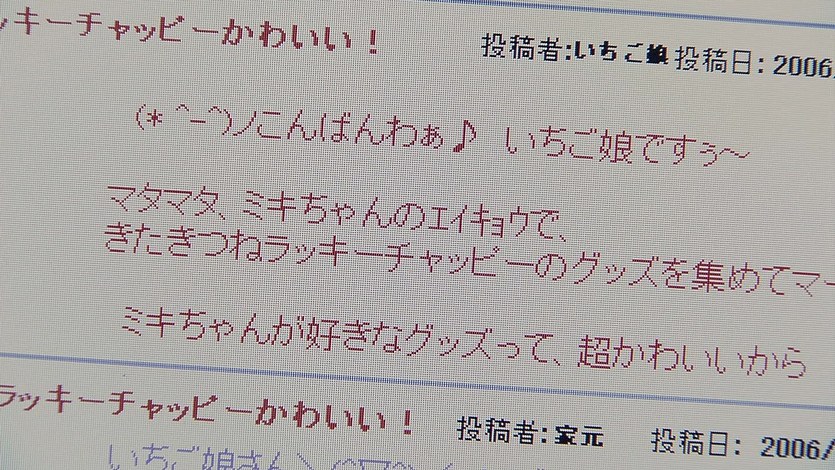 ッキーチャッピーかわいい！ 投稿者:いちご娘 投稿日: 2006/
(* ^-^)ﾉこんばんわぁ♪ いちご娘ですぅ～
マタマタ、ミキちゃんのエイキョウで、
きたきつねラッキーチャッピーのグッズを集めてマー
ミキちゃんが好きなグッズって、超かわいいから
ラッキーチャッピーかわいい！ 投稿者: 家元 投稿日: 2006/
いちご娘さん